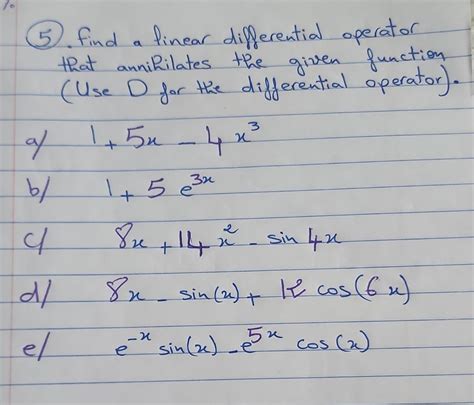 5. Find a linear differential operator
that annihilates the given function
(Use D for the differential operator).
a/ 1 + 5x - 4x³
b/ 1 + 5 e³ˣ
c/ 8x + 14x² - sin 4x
d/ 8x - sin(x) + 12 cos(6x)
e/ e⁻ˣ sin(x) - e⁵ˣ cos(x)